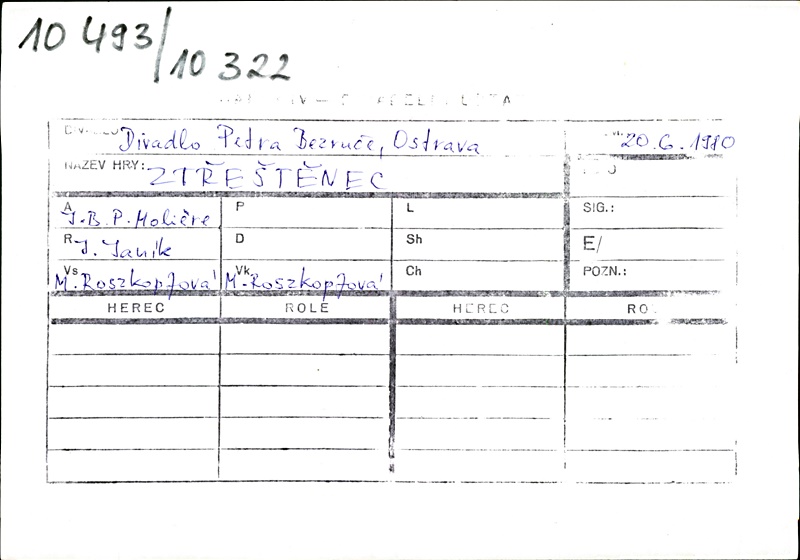 10 493/10 322
DIVADLO: Divadlo Petra Bezruče, Ostrava 20.6.1980
NÁZEV HRY: ZTŘEŠTĚNEC
A J.B.P. Molière P L SIG.:
R J. Janík D Sh E/
Vs M. Roszkopfová Vk M. Roszkopfová Ch POZN.:
HEREC ROLE HEREC RO